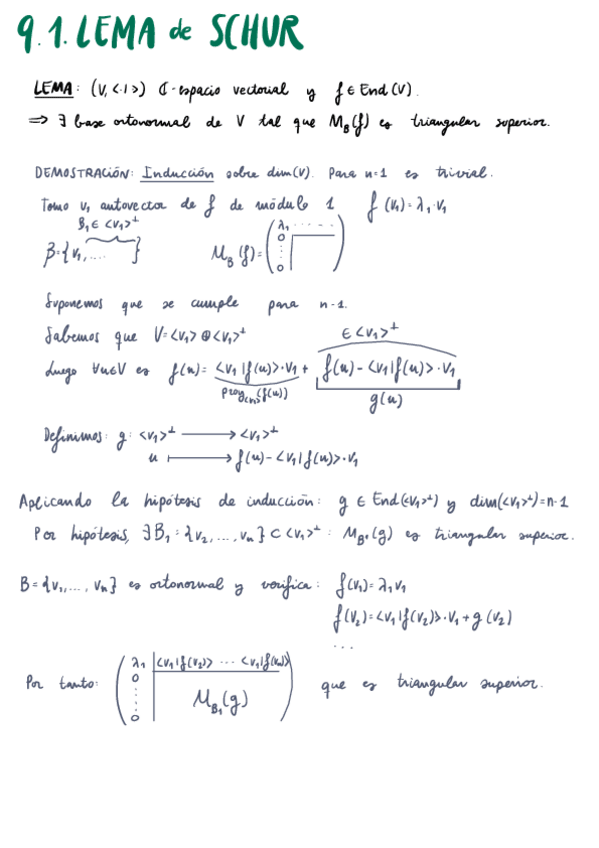 9.1. LEMA de SCHUR
LEMA: (V, <·|>) ℂ-espacio vectorial y f ∈ End(V).
⇒ ∃ base ortonormal de V tal que M_B(f) es triangular superior.
DEMOSTRACIÓN: Inducción sobre dim(V). Para n=1 es trivial.
Tomo v₁ autovector de f de módulo 1 f(v₁)=λ₁·v₁
B₁ ∈ <v₁>^⊥
B={v₁,....} M_B(f)= (λ₁ ·····
0
⋮
0)
Suponemos que se cumple para n-1.
Sabemos que V=<v₁>⊕<v₁>^⊥
∈<v₁>^⊥
Luego ∀u∈V es f(u)= <v₁|f(u)>·v₁ + f(u)-<v₁|f(u)>·v₁
proy_<v₁>(f(u)) g(u)
Definimos: g: <v₁>^⊥ ⟶ <v₁>^⊥
u ⟼ f(u)-<v₁|f(u)>·v₁
Aplicando la hipótesis de inducción: g ∈ End(<v₁>^⊥) y dim(<v₁>^⊥)=n-1
Por hipótesis, ∃B₁={v₂,...,vₙ}⊂<v₁>^⊥ : M_B₁(g) es triangular superior.
B={v₁,...,vₙ} es ortonormal y verifica: f(v₁)=λ₁v₁
f(v₂)=<v₁|f(v₂)>·v₁+g(v₂)
...
Por tanto: (λ₁ <v₁|f(v₂)> ··· <v₁|f(vₙ)>
0
⋮ M_B₁(g)
0) que es triangular superior.